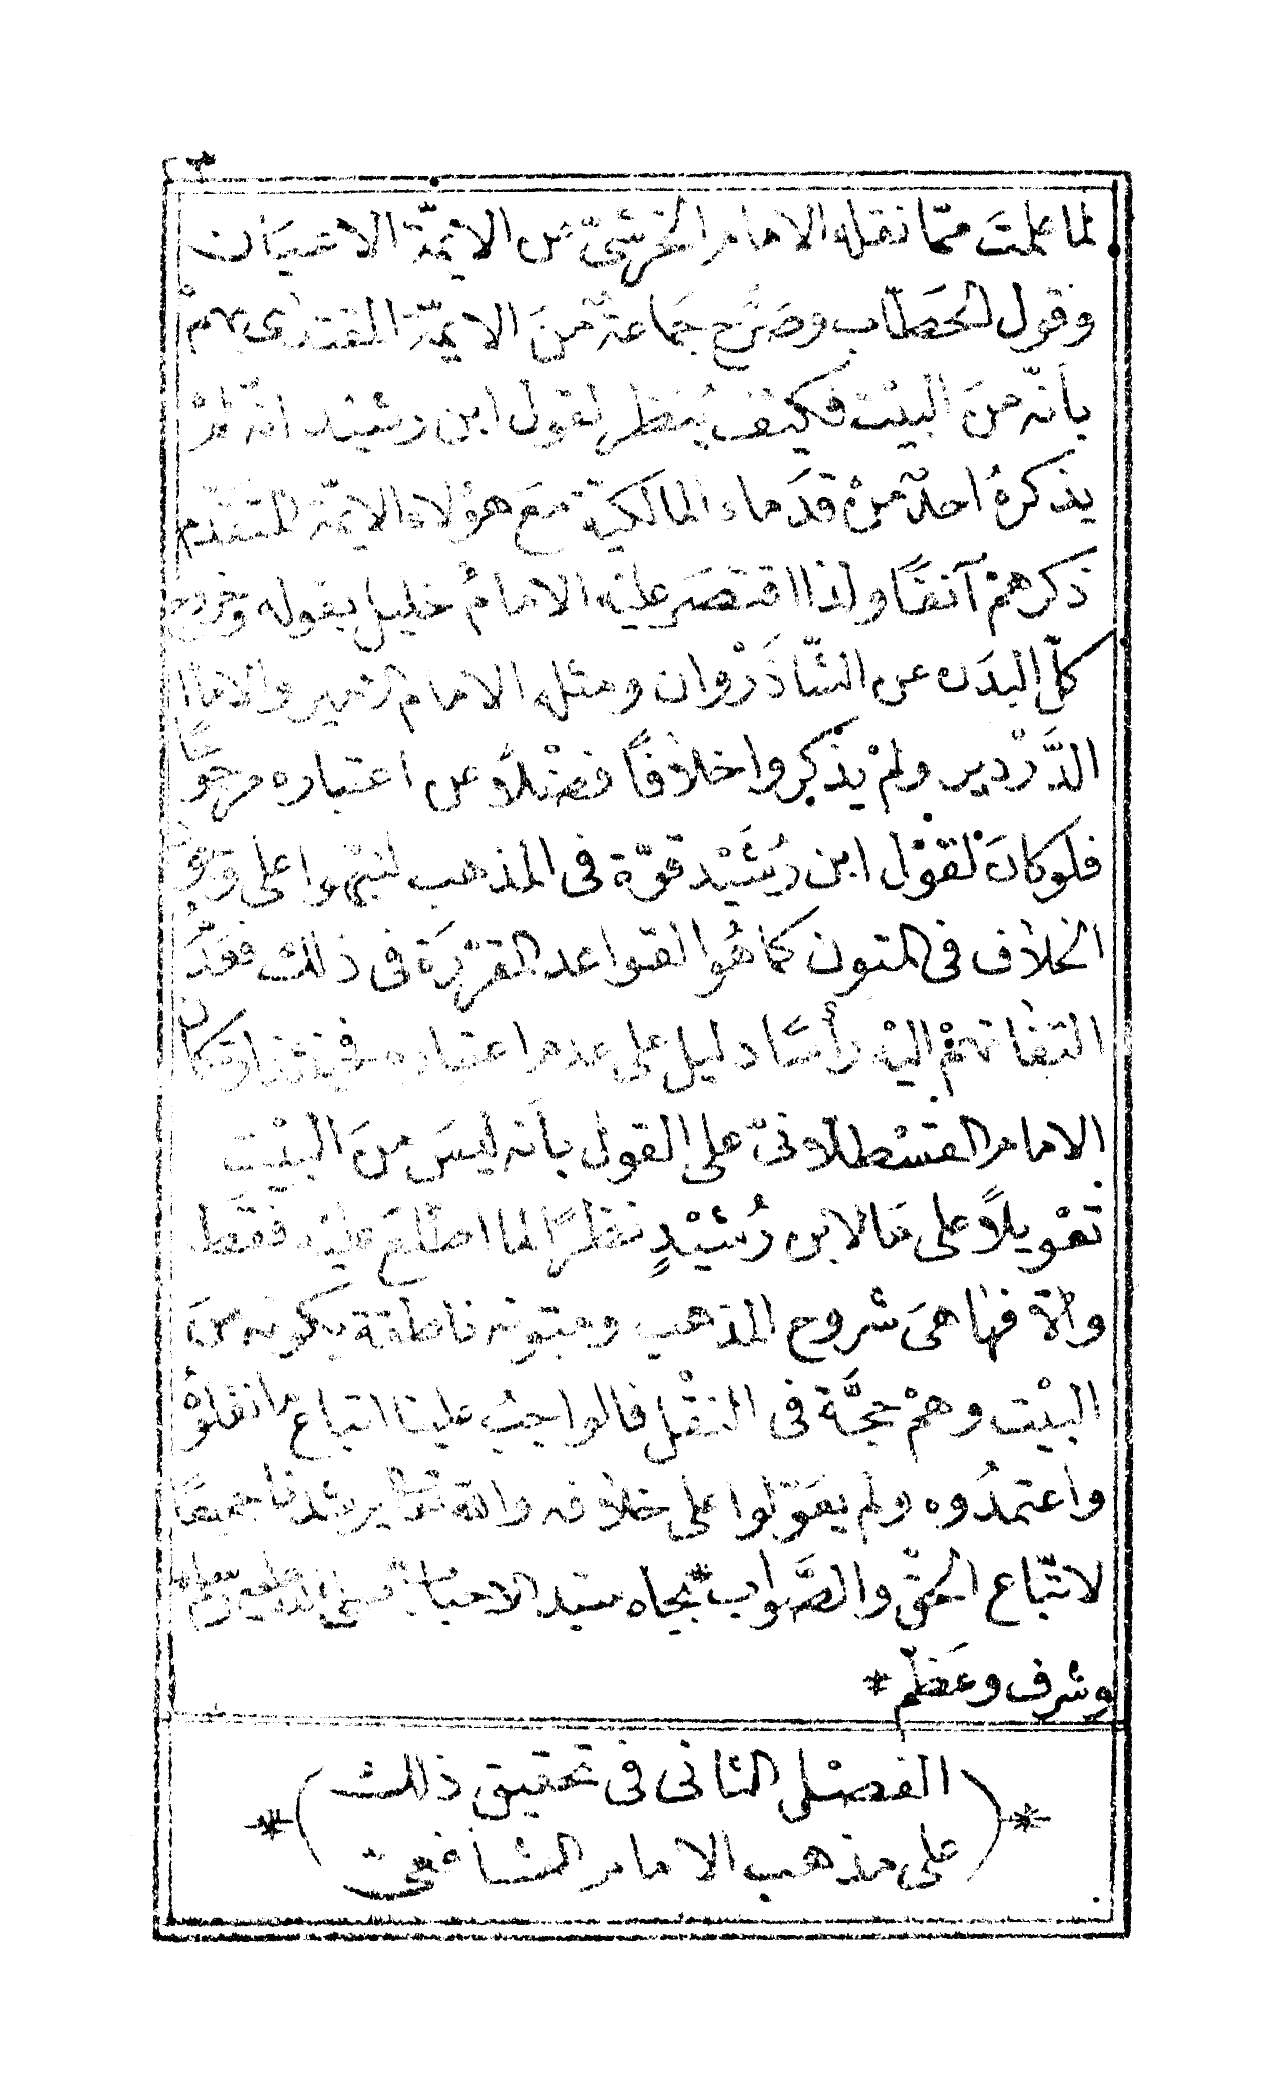 لما علمت ممّا نقله الامام الخرشىّ عن الايمّة الاعيَان
وقول الحَطّاب وصَرَّح جَمَاعةٌ منَ الايمّة المقتدٰى بهمْ
بأنّه منَ البيْت فكيْف يُنظر لقول ابن رشيْد انّه لمْ
يذكرهُ احدٌ منْ قدَماء المالكيّة مَع هؤلاء الايمّة المتقدّم
ذكرهمْ آنفًا ولذا اقتصَر عليْه الامامُ خليل بقوله وخروج
كلّ البدَن عن الشّاذَرْوان ومثله الامام الامير والامام
الدَّرْدير ولمْ يذْكروا خلافًا فضْلاً عن اعتباره مرجوحًا
فلوكانَ لقوْل ابن رُشَيْد قوّة فى المذهب لنبّهوا على وجود
الخلاف فى المتون كما هُو القواعد المقرّرَة فى ذلك فعَدمُ
التفاتهمْ اليْه رأسًا دليل على عدم اعتباره فحينئذ اتكال
الامام القسْطلاّنىّ على القول بأنه ليسَ منَ البيْت
تعْويلاً على مَا لابن رُشَيْدٍ نظرًا لما اطّلعَ عليْه فقَط
والاّ فها هىَ شروح المذهب ومتونه ناطقة بكونه منَ
البيْت وهمْ حجَّة فى النقْل فالواجبُ علينا اتباع ما نقلوْهُ
واعتمدُوه ولم يعَوّلوا على خلافه والله تعالى يرشدنا جميعًا
لاتّباع الحقّ والصَّواب * بجاه سيّد الاحباب صلى الله عليه وسلم
وشرف وعَظّم *
*(الفصْل الثانى فى تحقيق ذلك
على مذهب الامام الشافعىّ)*